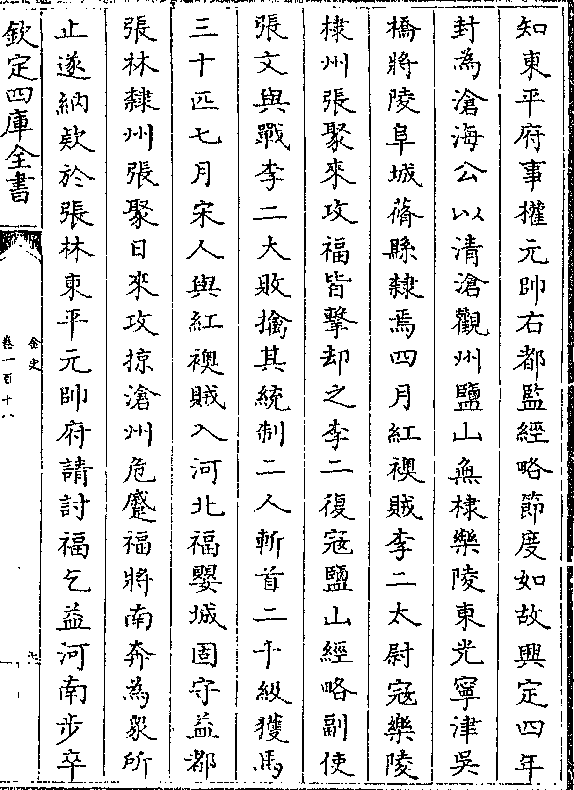 知東平府事權元帥右都監經略節度如故興定四年
封為滄海公以清滄觀州鹽山無棣樂陵東光寧津吳
橋將陵阜城蓨縣隸焉四月紅襖賊李二太尉冦樂陵
棣州張聚來攻福皆擊却之李二復冦鹽山經略副使
張文與戰李二大敗擒其統制二人斬首二千級獲馬
三十匹七月宋人與紅襖賊入河北福嬰城固守益都
張林隸州張聚日來攻掠滄州危蹙福將南奔為衆所
止遂納欵於張林東平元帥府請討福乞益河南步卒
欽定四庫全書
金史
卷一百十八